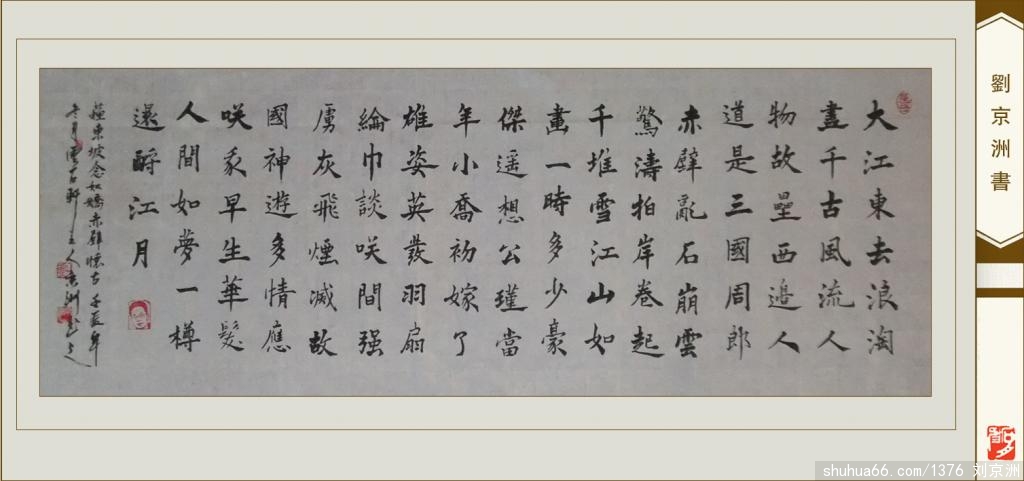 大江東去浪淘
盡千古風流人
物故壘西邉人
道是三國周郎
赤壁亂石崩雲
驚濤拍岸卷起
千堆雪江山如
畫一時多少豪
傑遥想公瑾當
年小喬初嫁了
雄姿英發羽扇
綸巾談咲間强
虜灰飛煙滅故
國神遊多情應
咲我早生華髮
人間如夢一樽
還酹江月
蘇東坡念奴嬌赤壁懷古 壬辰年
冬月 軒主人京洲書
劉京洲書
shuhua66.com/1376 刘京洲